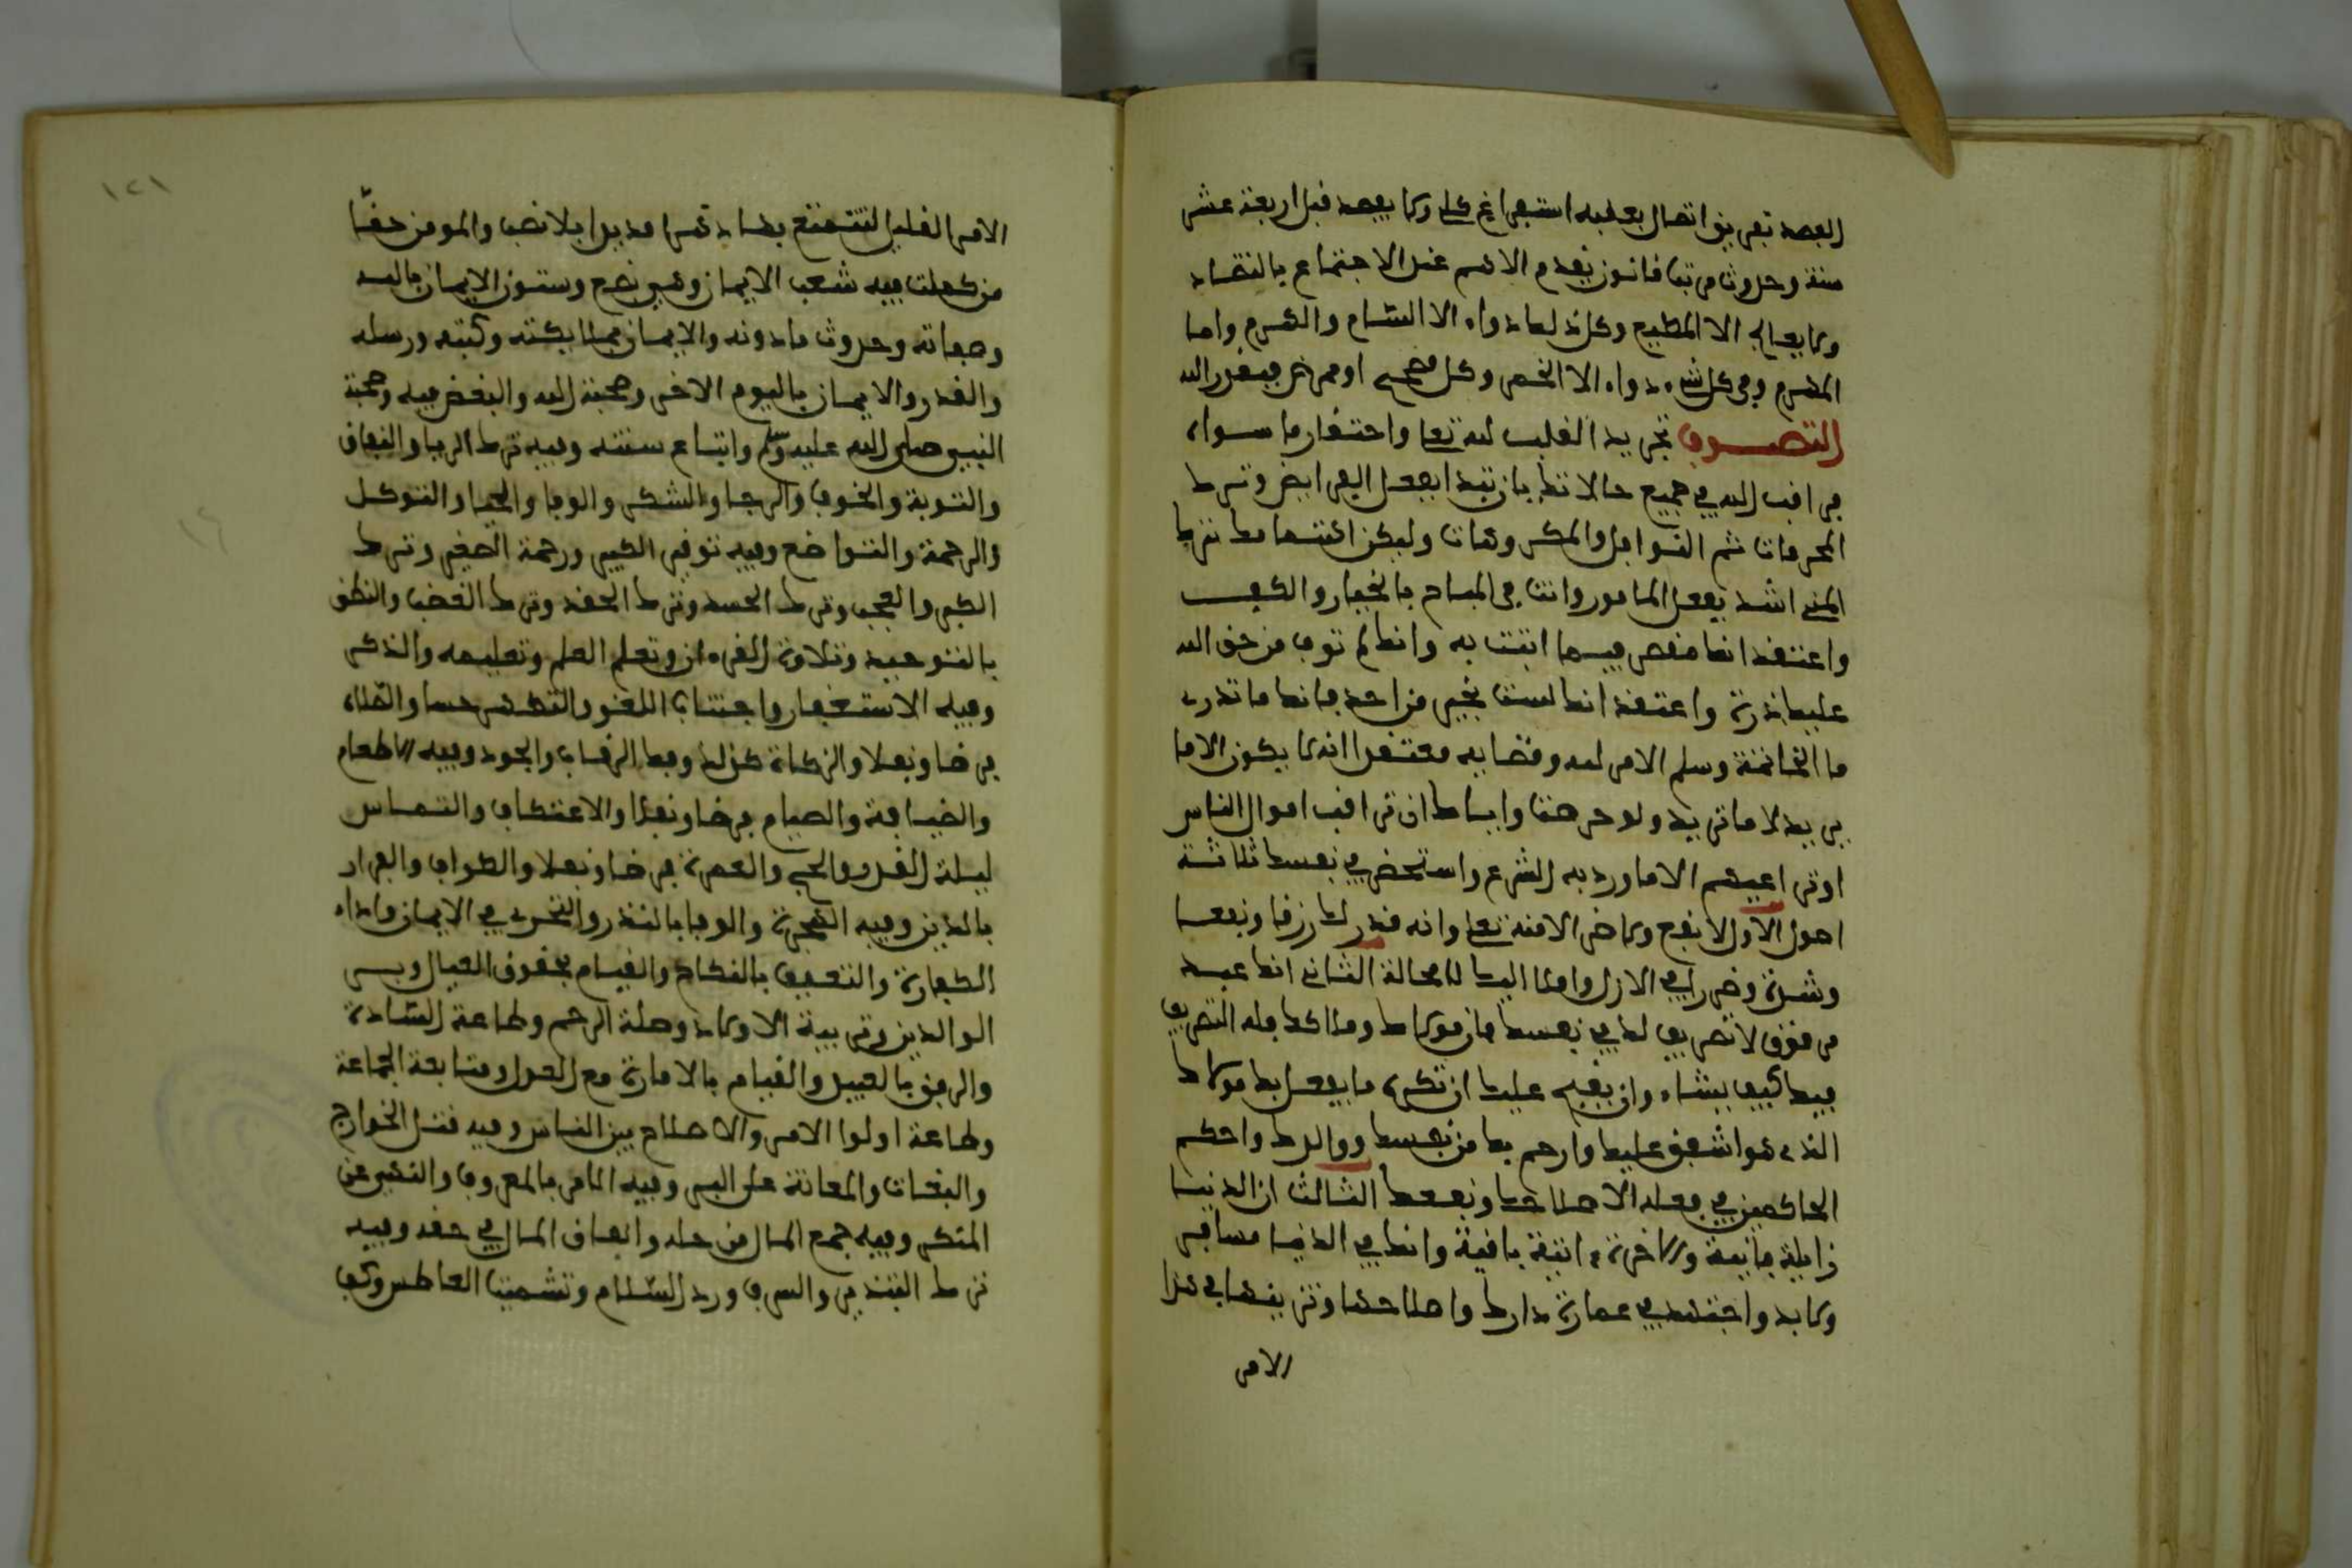 الفصد تفريق اتصال يعقبه استفراغ كلي ولا يفصد قبل اربعة عشر
سنة وحدوث مرتبا قانون يقدم الاهم عند الاجتماع بالتضاد
ولا يعالج الا المطيع وكل داء له دواء الا السام والهرم واما
الهرم وفي كل شيء دواء الا الخمر وكل مصح او ممرض فبقدر الله
التصوف تجريد القلب لله تعا واحتقار ما سواه
فراقب الله في جميع حالاتك بان تبدا بفعل الفرايض وترك
المحرمات ثم النوافل والمكروهات وليكن اهتمامك بترك
المنهي اشد بفعل المامور وانت في المباح بالخيار والكف
واعتقد انك مقصر فيما اتيت به وانك لم توف من حق الله
عليك ذرة واعتقد انك لست بخير من احد فانك ما تدري
ما الخاتمة وسلم الامر لله وقضايه معتقدا انه لا يكون الا ما
يريد لا ما تريد ولو حرصت واياك ان تراقب احوال الناس
او تراعيهم الا ما ورد به الشرع واستحضر في نفسك ثلاثة
اصول الاول لا نفع ولا ضر الا منه تعا وانه قدر لك رزقا ونفعا
وشدة وضررا في الازل واصلا اليك لا محالة الثاني انك عبد
مرقوق لا تصريف لك في نفسك وان مولاك ومالكك له التصريف
فيك كيف يشاء وان يقبح عليك ان تكره ما يفعل بك مولاك
الذي هو اشفق عليك وارحم بك من نفسك ووالدك واحكم
الحاكمين في فعله الا صلاحك ونفعك الثالث ان الدنيا
زايلة فانية والاخرة ءاتية باقية وانك في الدنيا مسافر
ولا بد واجتهد في عمارة دارك واصلاحها وتزيينها في هذا
الامر
١٢١
الامر القليل لتتمتع بها دهرا مديدا بلا نصب والمومن حقّا
من كملت فيه شعب الايمان وهي بضع وستون الايمان بالله
وصفاته وحدوث ما دونه والايمان بملايكته وكتبه ورسله
والقدر والايمان باليوم الاخر ومحبة الله والبغض فيه ومحبة
النبي صلى الله عليه وسلم واتباع سنته وفيه ترك الريا والنفاق
والتوبة والخوف والرجا والشكر والوفا والحيا والتوكل
والرحمة والتواضع وفيه توقير الكبير ورحمة الصغير وترك
الكبر والعجب وترك الحسد وترك الحقد وترك الغضب والنطق
بالتوحيد وتلاوة القرءان وتعلم العلم وتعليمه والذكر
وفيه الاستغفار واجتناب اللغو والتطهر حسا والصلاة
فرضا ونفلا والزكاة كذلك وفك الرقاب والجود وفيه الاطعام
والضيافة والصيام فرضا ونفلا والاعتكاف والتماس
ليلة القدر والحج والعمرة فرضا ونفلا والطواف والفرار
بالدين وفيه الهجرة والوفا بالنذر والتحري في الايمان واداء
الكفارة والتعفف بالنكاح والقيام بحقوق العيال وبر
الوالدين وتربية الاولاد وصلة الرحم وطاعة السادة
والرفق بالعبيد والقيام بالامارة مع العدل ومتابعة الجماعة
وطاعة اولوا الامر والاصلاح بين الناس وفيه قتل الخوارج
والبغات والمعانة على البر وفيه الامر بالمعروف والنهي عن
المنكر وفيه جمع المال من حله وانفاق المال في حقه وفيه
ترك التبذير والسرف ورد السّلام وتشميت العاطس وكف